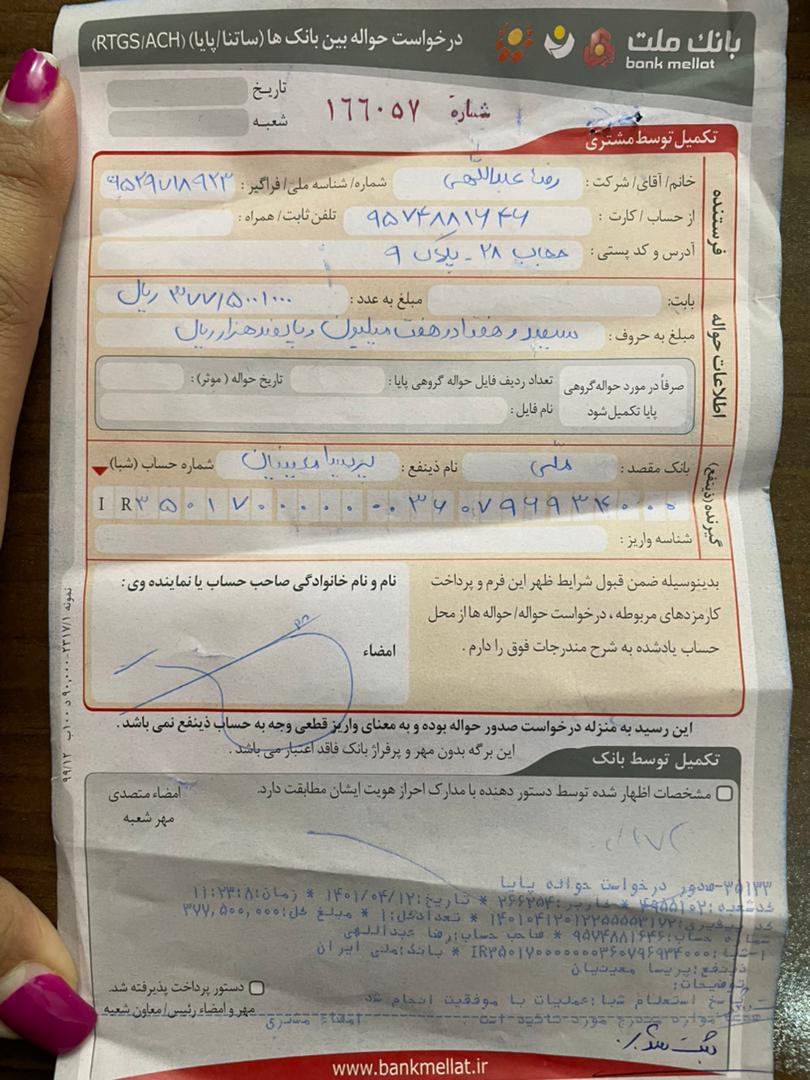 بانک ملت
bank mellat
درخواست حواله بین بانک ها (ساتنا/پایا) (RTGS/ACH)
تاریخ
شعبه
شماره ۱۶۶۰۵۷
تکمیل توسط مشتری
فرستنده
خانم/ آقای/ شرکت : رضا عبداللهی شماره/ شناسه ملی/ فراگیر :
از حساب/ کارت : ۹۵۷۴۸۸۱۶۴۶ تلفن ثابت/ همراه :
آدرس و کد پستی : حجاب ۲۸ - پلاک ۹
اطلاعات حواله
بابت: مبلغ به عدد : ۳۷۷/۵۰۰/۰۰۰ ریال
مبلغ به حروف : سیصد و هفتاد و هفت میلیون و پانصد هزار ریال
صرفاً در مورد حواله گروهی پایا تکمیل شود
تعداد ردیف فایل حواله گروهی پایا : تاریخ حواله ( موثر) :
نام فایل :
گیرنده (ذینفع)
بانک مقصد : ملی نام ذینفع : پریسا معینیان شماره حساب (شبا)
IR۳۵۰۱۷۰۰۰۰۰۰۰۳۶۰۷۹۶۹۳۴۰۰۰
شناسه واریز :
بدینوسیله ضمن قبول شرایط ظهر این فرم و پرداخت
کارمزدهای مربوطه ، درخواست حواله/ حواله ها از محل
حساب یادشده به شرح مندرجات فوق را دارم .
نام و نام خانوادگی صاحب حساب یا نماینده وی :
امضاء
این رسید به منزله درخواست صدور حواله بوده و به معنای واریز قطعی وجه به حساب ذینفع نمی باشد .
این برگه بدون مهر و پرفراژ بانک فاقد اعتبار می باشد .
تکمیل توسط بانک
مشخصات اظهار شده توسط دستور دهنده با مدارک احراز هویت ایشان مطابقت دارد.
امضاء متصدی
مهر شعبه
۳۵۱۳۳-صدور درخواست حواله پایا
کدشعبه:۴۹۵۵۱۰۲ * کاربر:۲۶۶۲۵۴ * تاریخ:۱۴۰۱/۰۴/۱۲ * زمان:۱۱:۲۳:۸
کد پیگیری: * تعدادکل:۱ * مبلغ کل:۳۷۷,۵۰۰,۰۰۰
شماره حساب:۹۵۷۴۸۸۱۶۴۶ * صاحب حساب:رضا عبداللهی
۱-شبا:IR۳۵۰۱۷۰۰۰۰۰۰۰۳۶۰۷۹۶۹۳۴۰۰۰ * بانک:ملی ایران
ذینفع:پریسا معینیان
توضیحات:
پاسخ استعلام شبا:عملیات با موفقیت انجام شد
موارد مندرج مورد تائید است امضاء مشتری
دستور پرداخت پذیرفته شد.
مهر و امضاء رئیس/ معاون شعبه
ثبت شد
www.bankmellat.ir
نمونه ۲۳۱۷/۱-۹۰,۰۰۰ د ۱۰۰ ب ۹۹/۱۲